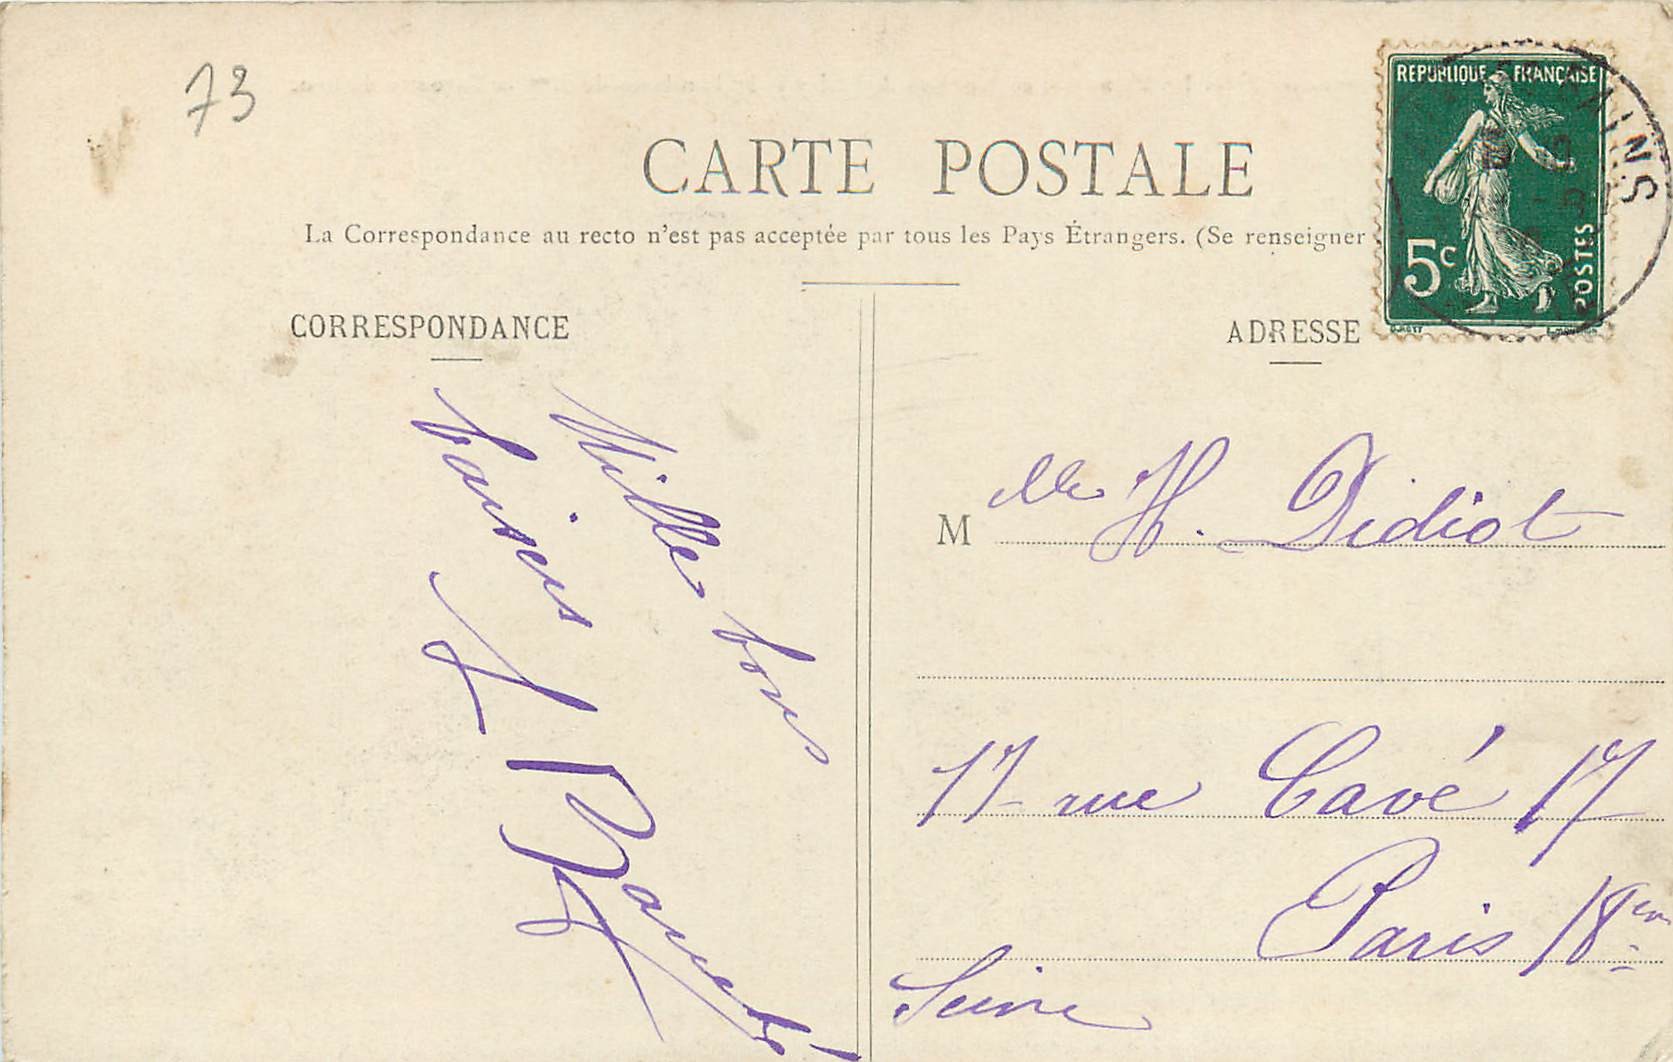 73
CARTE POSTALE
La Correspondance au recto n'est pas acceptée par tous les Pays Étrangers. (Se renseigner
REPUBLIQUE FRANÇAISE
5c
POSTES
CORRESPONDANCE
Mille bons
baisers
ADRESSE
Mlle H. Didiot
17 rue Cavé 17
Paris 18em
Seine